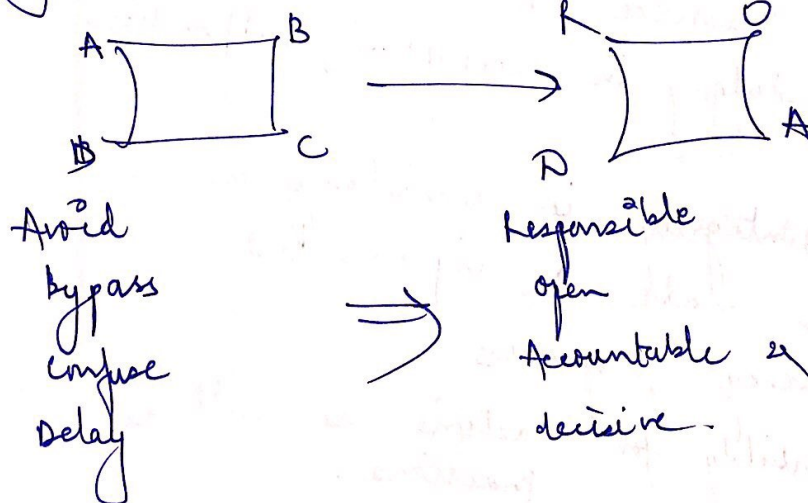 A B
B C
R O
D A
Avoid
Bypass
Confuse
Delay
⇒
Responsible
open
Accountable &
decisive.